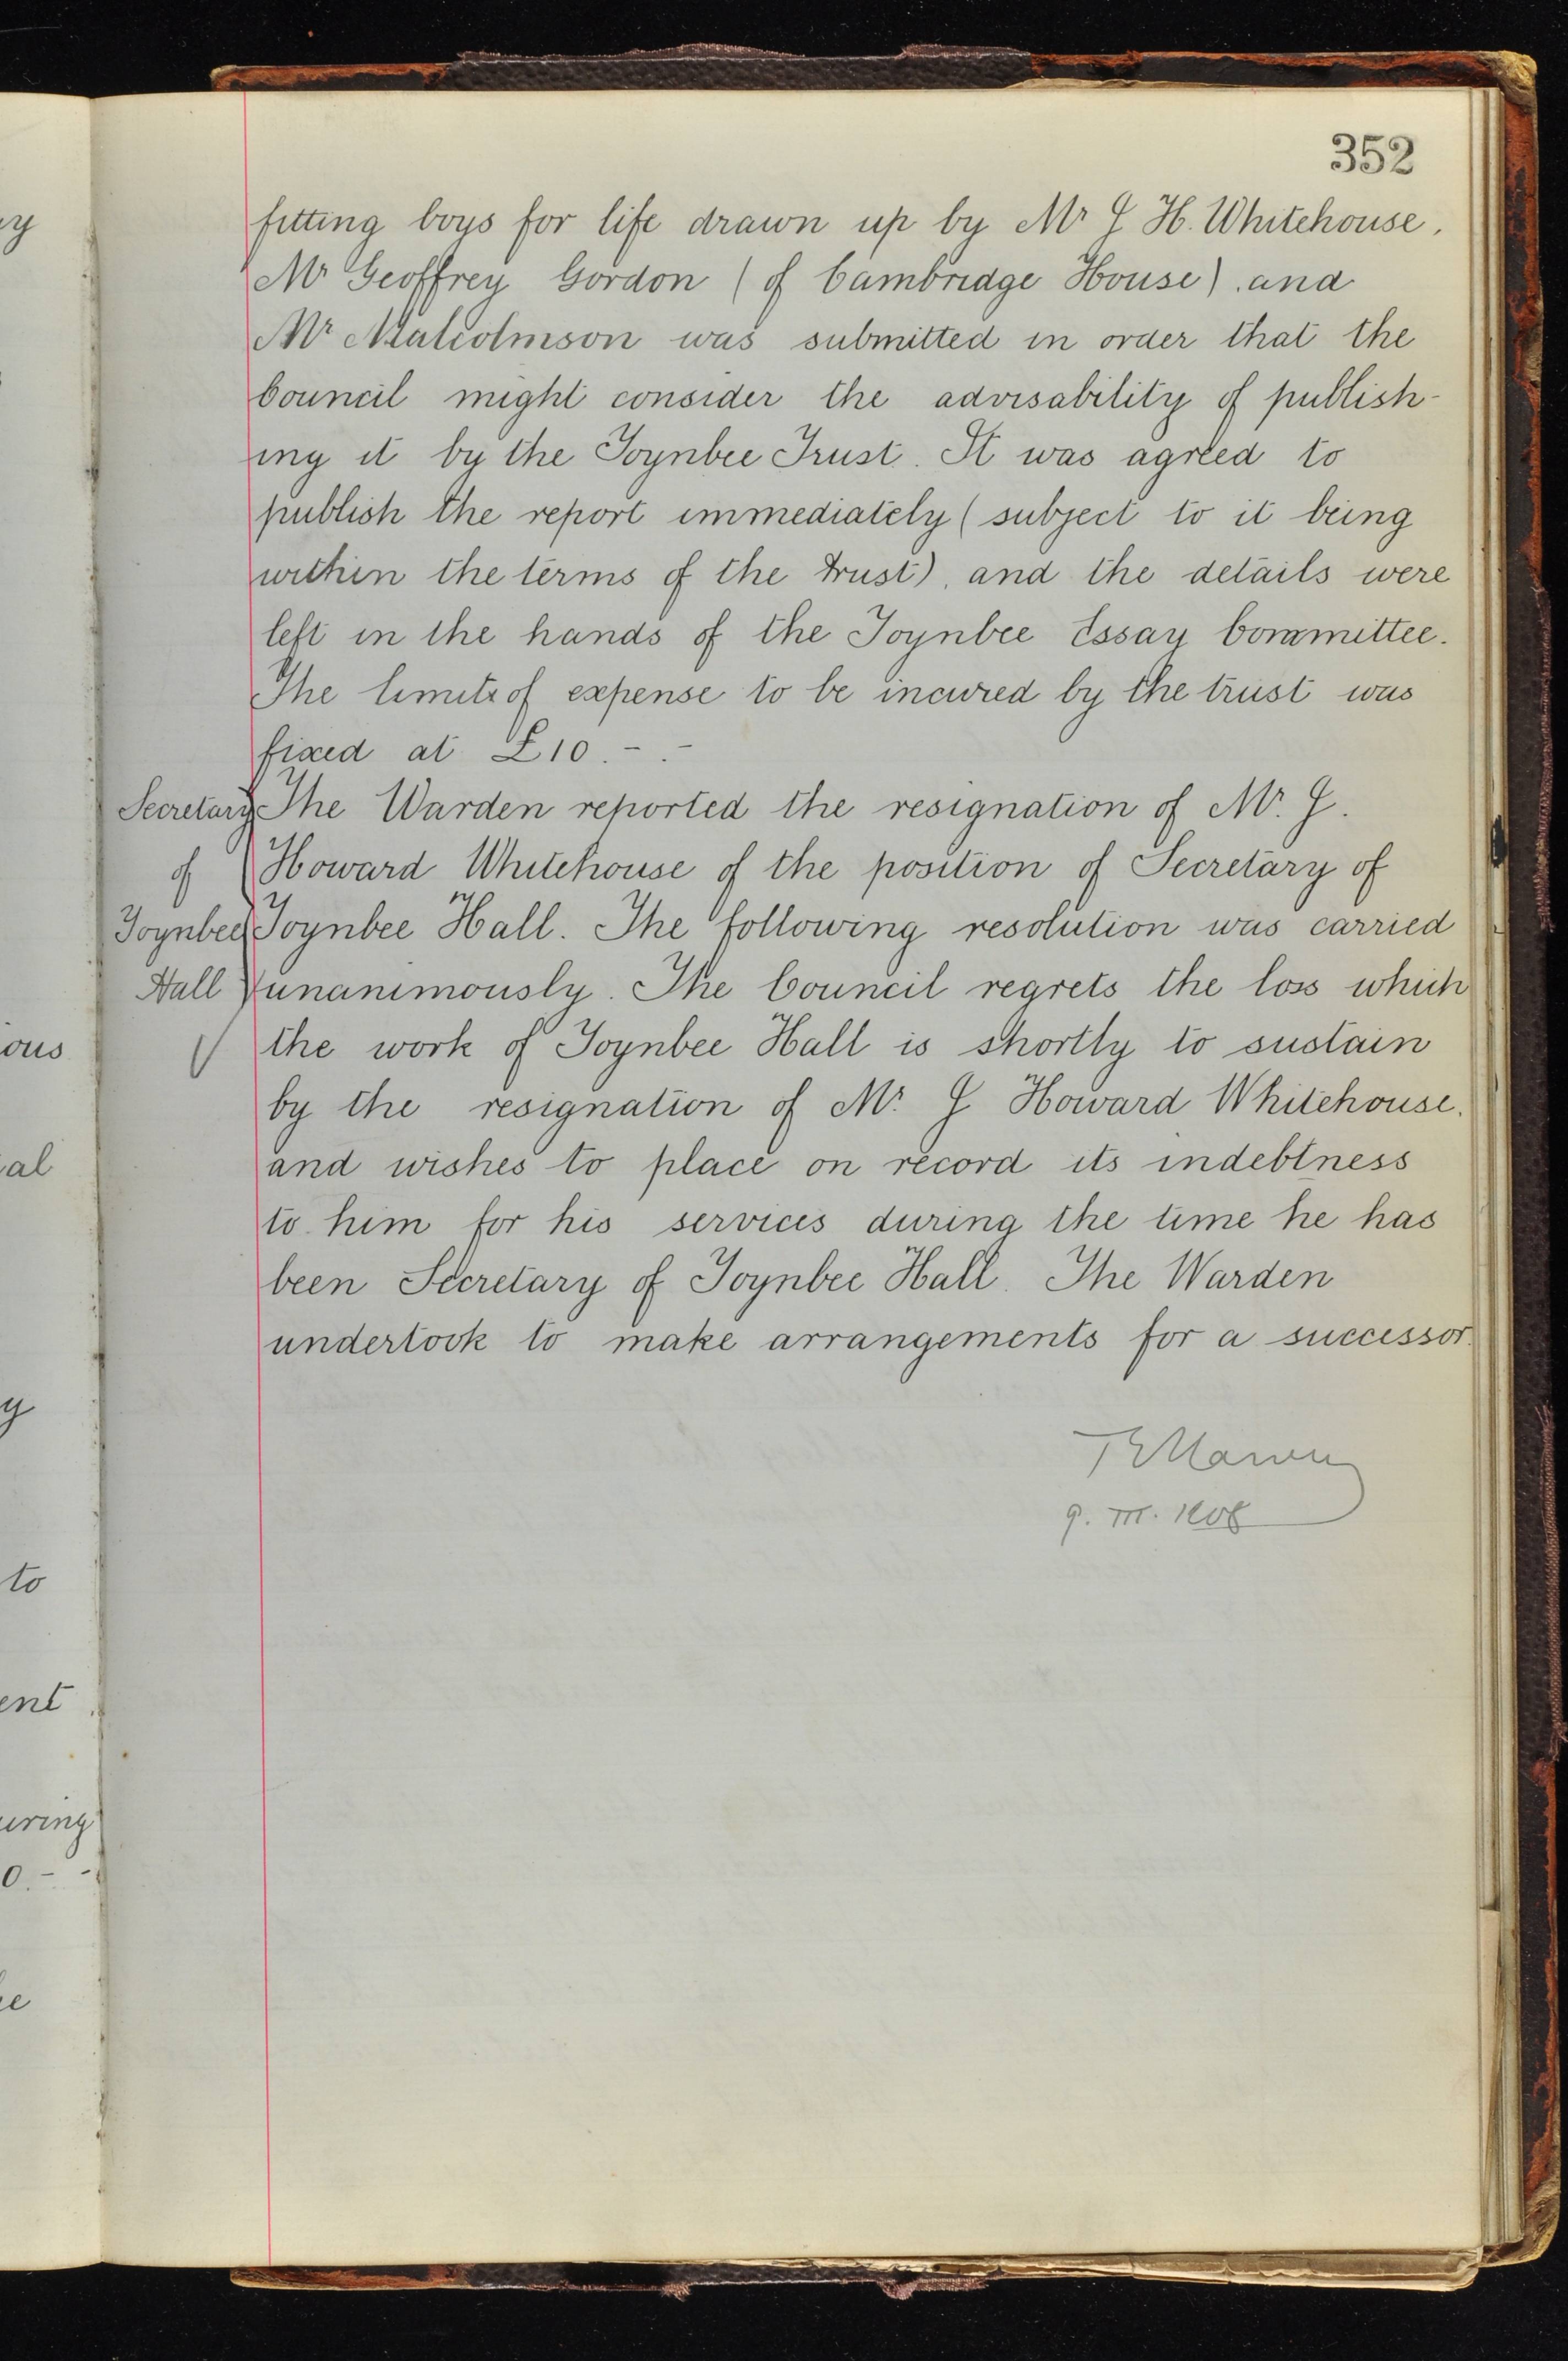 352
fitting boys for life drawn up by Mr J H. Whitehouse,
Mr Geoffrey Gordon (of Cambridge House), and
Mr Malcolmson was submitted in order that the
Council might consider the advisability of publish-
ing it by the Toynbee Trust. It was agreed to
publish the report immediately (subject to it being
within the terms of the trust), and the details were
left in the hands of the Toynbee Essay Committee.
The limits of expense to be incured by the trust was
fixed at £10. - . -
Secretary The Warden reported the resignation of Mr. J.
of Howard Whitehouse of the position of Secretary of
Toynbee Toynbee Hall. The following resolution was carried
Hall unanimously. The Council regrets the loss which
the work of Toynbee Hall is shortly to sustain
by the resignation of Mr. J Howard Whitehouse.
and wishes to place on record its indebtness
to him for his services during the time he has
been Secretary of Toynbee Hall. The Warden
undertook to make arrangements for a successor.
ey
ous
ial
y
to
ent
uring
0. - -